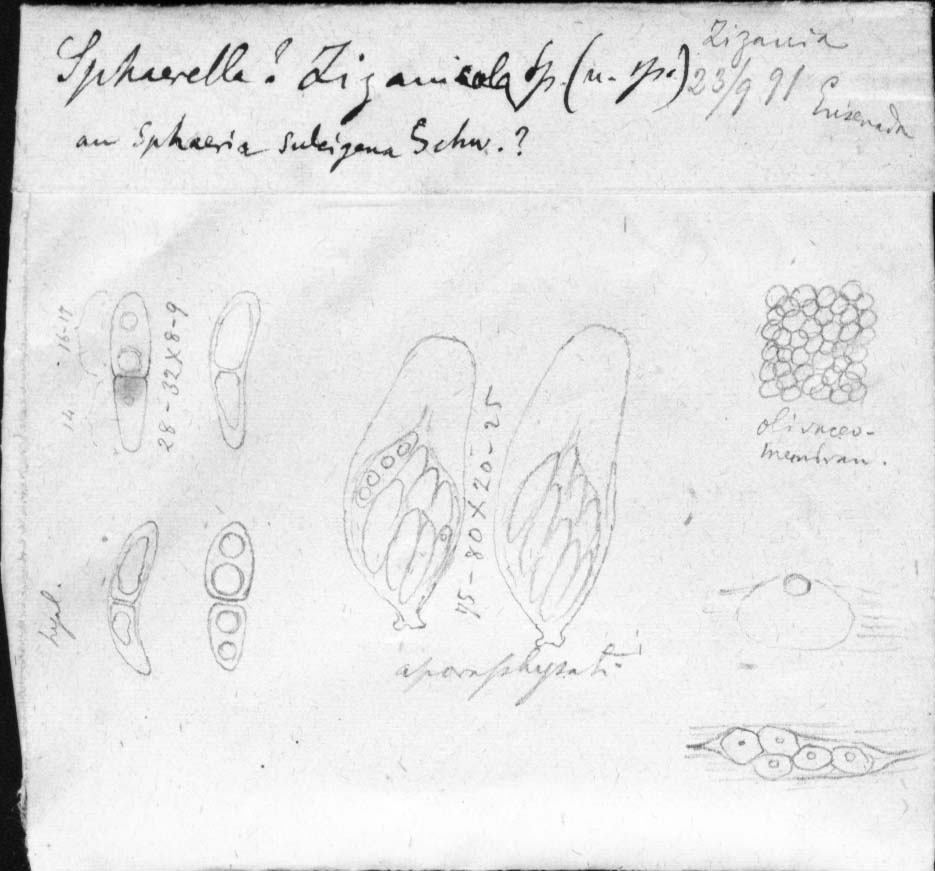 Sphaerella? Zizanicola Sp. (n. sp.)
an Sphaeria suleigena Schw.?
Zizania
23/9 91
Ensenada
14 - 16-17
28-32X8-9
hyal.
75-80X20-25
aparaphysati
olivaceo-
membran.